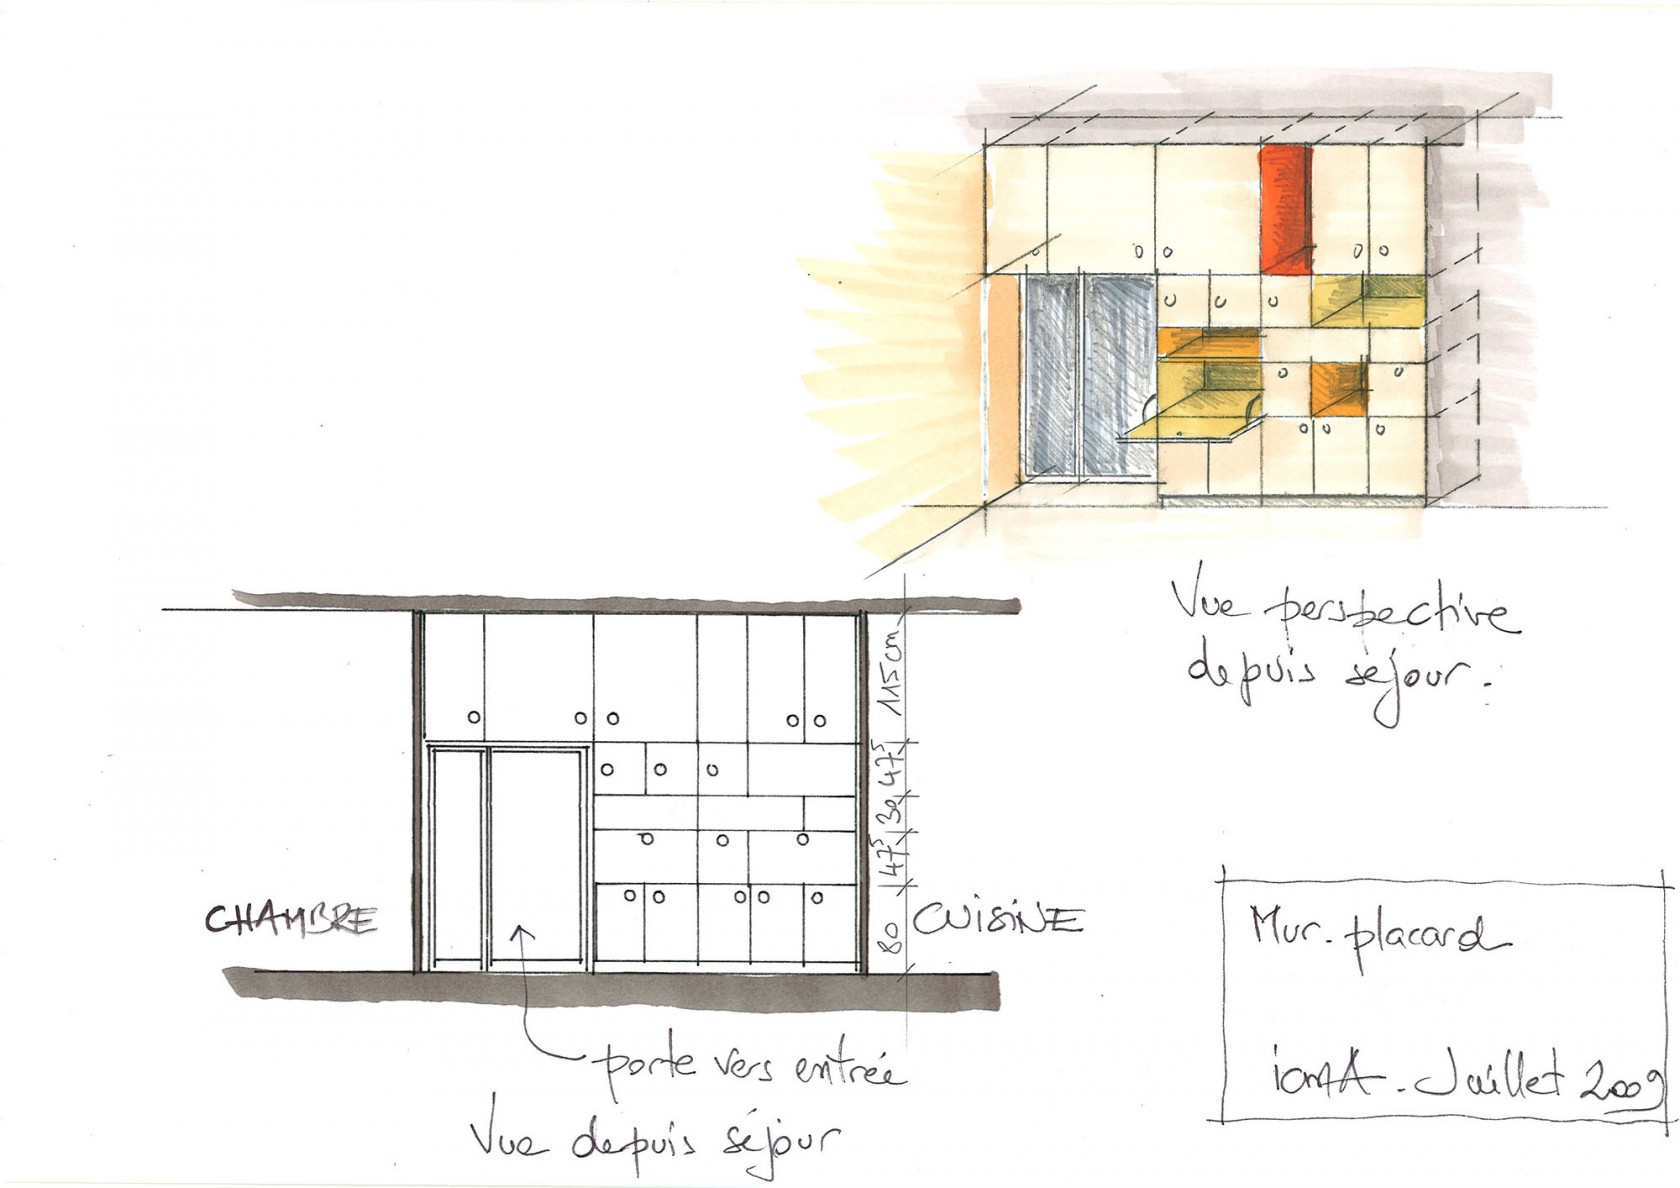 Vue perspective
depuis séjour.
115cm
47⁵
30
47⁵
80
CHAMBRE
CUISINE
porte vers entrée
Vue depuis séjour
Mur. placard
Juillet 2009